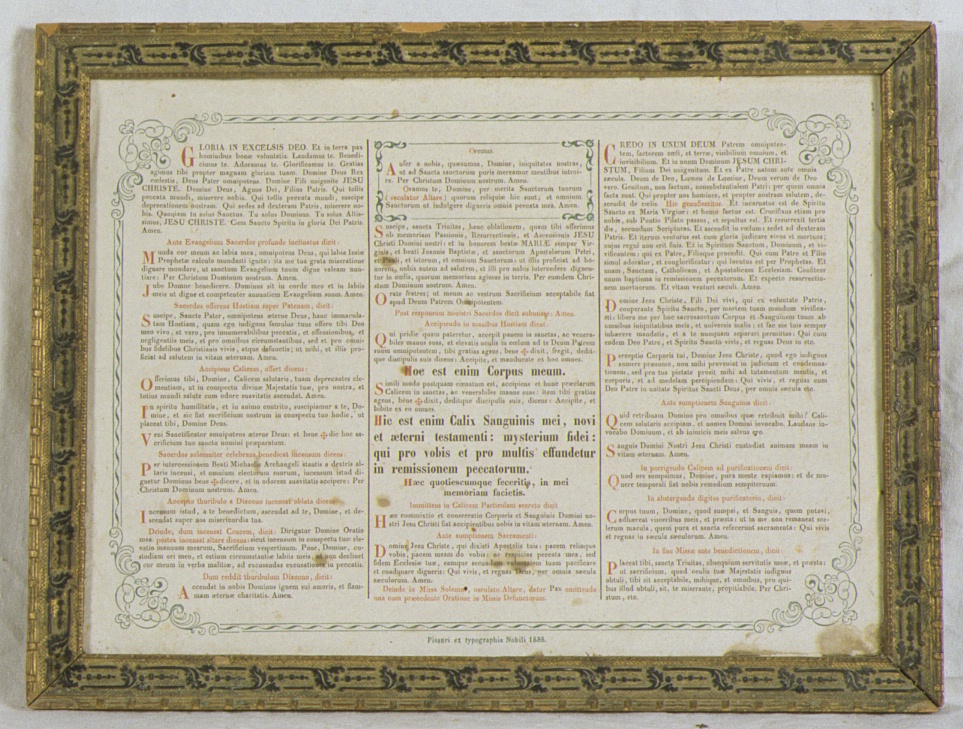 GLORIA IN EXCELSIS DEO. Et in terra pax
hominibus bonæ voluntatis. Laudamus te. Benedi-
cimus te. Adoramus te. Glorificamus te. Gratias
agimus tibi propter magnam gloriam tuam. Domine Deus Rex
cœlestis, Deus Pater omnipotens. Domine Fili unigenite JESU
CHRISTE. Domine Deus, Agnus Dei, Filius Patris. Qui tollis
peccata mundi, miserere nobis. Qui tollis peccata mundi, suscipe
deprecationem nostram. Qui sedes ad dexteram Patris, miserere no-
bis. Quoniam tu solus Sanctus. Tu solus Dominus. Tu solus Altis-
simus, JESU CHRISTE. Cum Sancto Spiritu in gloria Dei Patris.
Amen.
Ante Evangelium Sacerdos profunde inclinatus dicit:
Munda cor meum ac labia mea, omnipotens Deus, qui labia Isaiæ
Prophetæ calculo mundasti ignito: ita me tua grata miseratione
dignare mundare, ut sanctum Evangelium tuum digne valeam nun-
tiare: Per Christum Dominum nostrum. Amen.
Jube Domne benedicere. Dominus sit in corde meo et in labiis
meis ut digne et competenter annuntiem Evangelium suum. Amen.
Sacerdos offerens Hostiam super Patenam, dicit:
Suscipe, Sancte Pater, omnipotens æterne Deus, hanc immacula-
tam Hostiam, quam ego indignus famulus tuus offero tibi Deo
meo vivo, et vero, pro innumerabilibus peccatis, et offensionibus, et
negligentiis meis, et pro omnibus circumstantibus, sed et pro omni-
bus fidelibus Christianis vivis, atque defunctis; ut mihi, et illis pro-
ficiat ad salutem in vitam æternam. Amen.
Accipiens Calicem, offert dicens:
Offerimus tibi, Domine, Calicem salutaris, tuam deprecantes cle-
mentiam, ut in conspectu divinæ Majestatis tuæ, pro nostra, et
totius mundi salute cum odore suavitatis ascendat. Amen.
In spiritu humilitatis, et in animo contrito, suscipiamur a te, Do-
mine, et sic fiat sacrificium nostrum in conspectu tuo hodie, ut
placeat tibi, Domine Deus.
Veni Sanctificator omnipotens æterne Deus: et bene ✠ dic hoc sa-
crificium tuo sancto nomini præparatum.
Sacerdos solemniter celebrans benedicat incensum dicens:
Per intercessionem Beati Michaelis Archangeli stantis a dextris al-
taris incensi, et omnium electorum suorum, incensum istud di-
gnetur Dominus bene ✠ dicere, et in odorem suavitatis accipere: Per
Christum Dominum nostrum. Amen.
Accepto thuribulo a Diacono incenset oblata dicens:
Incensum istud, a te benedictum, ascendat ad te, Domine, et de-
scendat super nos misericordia tua.
Deinde, dum incensat Crucem, dicit: Dirigatur Domine Oratio
mea: postea incenset altare dicens: sicut incensum in conspectu tuo: ele-
vatio manuum mearum, Sacrificium vespertinum. Pone, Domine, cu-
stodiam ori meo, et ostium circumstantiæ labiis meis, ut non declinet
cor meum in verba malitiæ, ad excusandas excusationes in peccatis.
Dum reddit thuribulum Diacono, dicit:
Accendat in nobis Dominus ignem sui amoris, et flam-
mam æternæ charitatis. Amen.
Oremus.
Aufer a nobis, quæsumus, Domine, iniquitates nostras,
ut ad Sancta sanctorum puris mereamur mentibus introi-
re. Per Christum Dominum nostrum. Amen.
Oramus te, Domine, per merita Sanctorum tuorum
(osculatur Altare) quorum reliquiæ hic sunt, et omnium
Sanctorum ut indulgere digneris omnia peccata mea. Amen.
Suscipe, sancta Trinitas, hanc oblationem, quam tibi offerimus
ob memoriam Passionis, Resurrectionis, et Ascensionis JESU
Christi Domini nostri: et in honorem beatæ MARIÆ semper Vir-
ginis, et beati Joannis Baptistæ, et sanctorum Apostolorum Petri,
et Pauli, et istorum, et omnium Sanctorum: ut illis proficiat ad ho-
norem, nobis autem ad salutem, et illi pro nobis intercedere dignen-
tur in cœlis, quorum memoriam agimus in terris. Per eumdem Chri-
stum Dominum nostrum. Amen.
Orate fratres; ut meum ac vestrum Sacrificium acceptabile fiat
apud Deum Patrem Omnipotentem.
Post responsum ministri Sacerdos dicit submisse: Amen.
Accipiendo in manibus Hostiam dicat.
Qui pridie quam pateretur, accepit panem in sanctas, ac venera-
biles manus suas, et elevatis oculis in cœlum ad te Deum Patrem
suum omnipotentem, tibi gratias agens, bene ✠ dixit, fregit, dedit-
que discipulis suis dicens: Accipite, et manducate ex hoc omnes.
Hoc est enim Corpus meum.
Simili modo postquam cœnatum est, accipiens et hunc præclarum
Calicem in sanctas, ac venerabiles manus suas: item tibi gratias
agens, bene ✠ dixit, deditque discipulis suis, dicens: Accipite, et
bibite ex eo omnes.
Hic est enim Calix Sanguinis mei, novi
et æterni testamenti: mysterium fidei:
qui pro vobis et pro multis effundetur
in remissionem peccatorum.
Hæc quotiescumque feceritis, in mei
memoriam facietis.
Immittens in Calicem Particulam secreto dicit
Hæc commixtio et consecratio Corporis et Sanguinis Domini no-
stri Jesu Christi fiat accipientibus nobis in vitam æternam. Amen.
Ante sumptionem Sacramenti:
Domine Jesu Christe, qui dixisti Apostolis tuis: pacem relinquo
vobis, pacem meam do vobis: ne respicias peccata mea, sed
fidem Ecclesiæ tuæ, eamque secundum voluntatem tuam pacificare
et coadunare digneris: Qui vivis, et regnas Deus, per omnia sæcula
sæculorum. Amen.
Deinde in Missa Solemni, osculato Altare, datur Pax omittendo
una cum præcedente Oratione in Missis Defunctorum.
CREDO IN UNUM DEUM Patrem omnipoten-
tem, factorem cœli, et terræ, visibilium omnium, et
invisibilium. Et in unum Dominum JESUM CHRI-
STUM, Filium Dei unigenitum. Et ex Patre natum ante omnia
sæcula. Deum de Deo, Lumen de Lumine, Deum verum de Deo
vero. Genitum, non factum, consubstantialem Patri: per quem omnia
facta sunt. Qui propter nos homines, et propter nostram salutem, de-
scendit de cœlis. Hic genuflectitur. Et incarnatus est de Spiritu
Sancto ex Maria Virgine: et homo factus est. Crucifixus etiam pro
nobis, sub Pontio Pilato passus, et sepultus est. Et resurrexit tertia
die, secundum Scripturas. Et ascendit in cœlum: sedet ad dexteram
Patris. Et iterum venturus est cum gloria judicare vivos et mortuos;
cujus regni non erit finis. Et in Spiritum Sanctum, Dominum, et vi-
vificantem: qui ex Patre, Filioque procedit. Qui cum Patre et Filio
simul adoratur, et conglorificatur: qui locutus est per Prophetas. Et
unam, Sanctam, Catholicam, et Apostolicam Ecclesiam. Confiteor
unum baptisma in remissionem peccatorum. Et expecto resurrectio-
nem mortuorum. Et vitam venturi sæculi. Amen.
Domine Jesu Christe, Fili Dei vivi, qui ex voluntate Patris,
cooperante Spiritu Sancto, per mortem tuam mundum vivifica-
sti: libera me per hoc sacrosanctum Corpus et Sanguinem tuum ab
omnibus iniquitatibus meis, et universis malis: et fac me tuis semper
inhærere mandatis, et a te nunquam separari permittas: Qui cum
eodem Deo Patre, et Spiritu Sancto vivis, et regnas Deus in etc.
Perceptio Corporis tui, Domine Jesu Christe, quod ego indignus
sumere præsumo, non mihi proveniat in judicium et condemna-
tionem, sed pro tua pietate prosit mihi ad tutamentum mentis, et
corporis, et ad medelam percipiendam: Qui vivis, et regnas cum
Deo Patre in unitate Spiritus Sancti Deus, per omnia sæcula etc.
Ante sumptionem Sanguinis dicit:
Quid retribuam Domino pro omnibus quæ retribuit mihi? Cali-
cem salutaris accipiam, et nomen Domini invocabo. Laudans in-
vocabo Dominum, et ab inimicis meis salvus ero.
Sanguis Domini Nostri Jesu Christi custodiat animam meam in
vitam æternam. Amen.
In porrigendo Calicem ad purificationem dicit:
Quod ore sumpsimus, Domine, pura mente capiamus: et de mu-
nere temporali fiat nobis remedium sempiternum.
In abstergendo digitos purificatorio, dicit:
Corpus tuum, Domine, quod sumpsi, et Sanguis, quem potavi,
adhæreat visceribus meis, et præsta: ut in me non remaneat sce-
lerum macula, quem pura et sancta refecerunt sacramenta: Qui vivis
et regnas in sæcula sæculorum. Amen.
In fine Missæ ante benedictionem, dicit:
Placeat tibi, sancta Trinitas, obsequium servitutis meæ, et præsta:
ut sacrificium, quod oculis tuæ Majestatis indignus
obtuli, tibi sit acceptabile, mihique, et omnibus, pro qui-
bus illud obtuli, sit, te miserante, propitiabile. Per Chri-
stum, etc.
Pisauri ex typographia Nobili 1858.